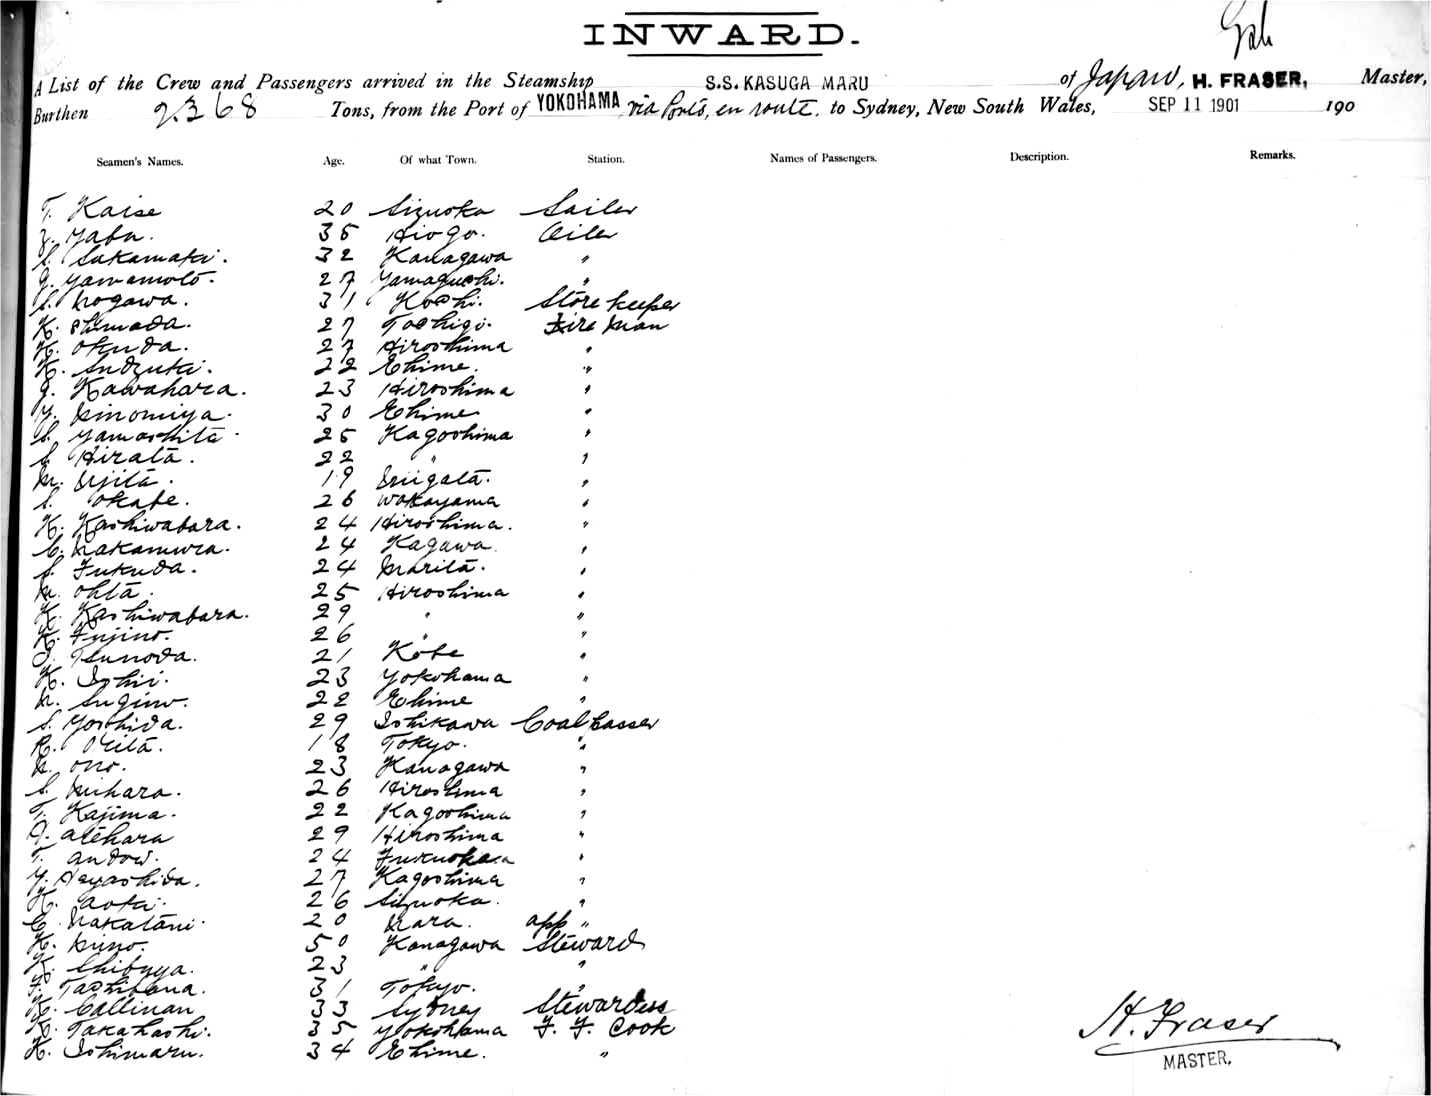 INWARD.
A List of the Crew and Passengers arrived in the Steamship S.S. KASUGA MARU of Japan, H. FRASER, Master,
Burthen 2368 Tons, from the Port of YOKOHAMA via Ports, en route, to Sydney, New South Wales, SEP 11 1901 190
Seamen's Names. Age. Of what Town. Station. Names of Passengers. Description. Remarks.
T. Kaise 20 Sizuoka Sailer
Yabu. 35 Hiogo. Oiler
S. Sakamaki. 32 Kanagawa "
Yamamoto. 27 Yamaguchi. "
S. Nogawa. 31 Kochi. Store keeper
K. Shimada. 27 Tochigi. Fire man
K. Okuda. 27 Hiroshima "
K. Sudzuki. 22 Ehime. "
Kawahara. 23 Hiroshima "
Y. Ninomiya. 30 Ehime "
S. Yamashita. 25 Kagoshima "
S. Hirata. 22 " "
M. Ujita. 19 Niigata. "
S. Okabe. 26 Wakayama "
K. Kashiwabara. 24 Hiroshima. "
Nakamura. 24 Kagawa "
S. Fukuda. 24 Narita. "
Ohta. 25 Hiroshima "
K. Kashiwabara. 29 " "
K. Fujino. 26 " "
Tsunoda. 21 Kobe "
K. Ishii. 23 Yokohama "
Sugino. 22 Ehime "
S. Yoshida. 29 Ishikawa Coal Passer
R. 18 Tokyo. "
Ono. 23 Kanagawa "
S. Mihara. 26 Hiroshima "
T. Kajima. 22 Kagoshima "
Atehara 29 Hiroshima "
T. Andow. 24 Fukuoka "
Y. Hayashida. 27 Kagoshima "
K. Aoki. 26 Sizuoka. "
Nakatani. 20 Nara. app "
K. 50 Kanagawa Steward
K. Shibuya. 23 " "
F. Tachibana. 31 Tokyo. "
K. Callinan 33 Sydney Stewardess
K. Takahashi. 35 Yokohama F. F. Cook
K. Ishimaru. 34 Ehime. "
H. Fraser
MASTER.